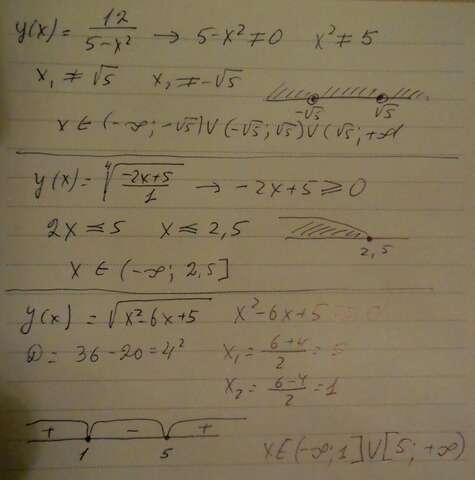 y(x) = 12/(5-x²) → 5-x² ≠ 0 x² ≠ 5
x₁ ≠ √5 x₂ ≠ -√5
-√5 √5
x ∈ (-∞; -√5) ∪ (-√5; √5) ∪ (√5; +∞
y(x) = ⁴√((-2x+5)/1) → -2x+5 ⩾ 0
2x ⩽ 5 x ⩽ 2,5
2,5
x ∈ (-∞; 2,5]
y(x) = √(x²-6x+5) x²-6x+5 ⩾ 0
D = 36-20 = 4² x₁ = (6+4)/2 = 5
x₂ = (6-4)/2 = 1
+ - +
1 5
x ∈ (-∞; 1] ∪ [5; +∞)